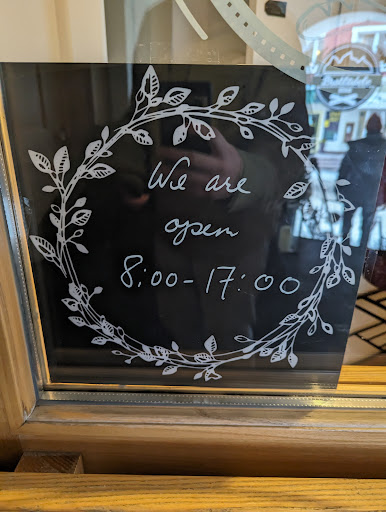 We are
open
8:00-17:00